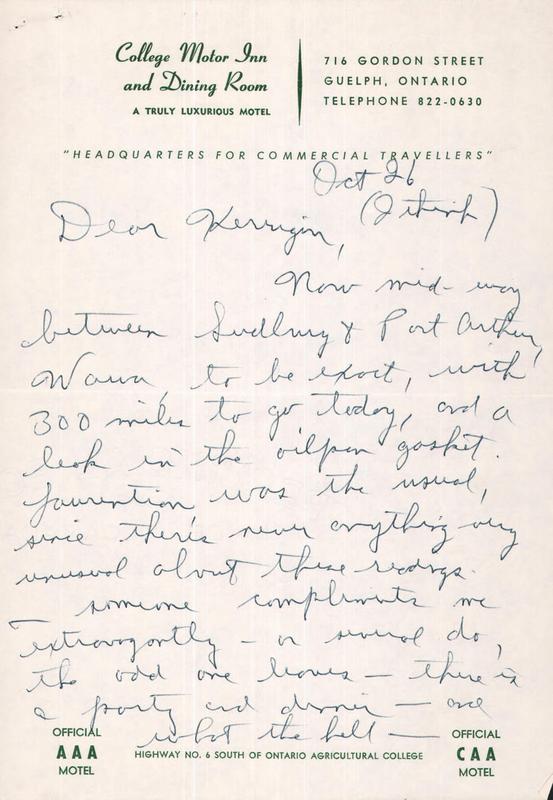 College Motor Inn
and Dining Room
A TRULY LUXURIOUS MOTEL
716 GORDON STREET
GUELPH, ONTARIO
TELEPHONE 822-0630
"HEADQUARTERS FOR COMMERCIAL TRAVELLERS"
Oct 26
(I think)
Dear Kerrigan,
Now mid-way
between Sudbury & Port Arthur,
Wawa, to be exact, with
300 miles to go today, and a
leak in the oilpan gasket.
Laurentian was the usual,
since there's never anything very
unusual about these readings.
someone compliments me
extravagantly – or several do,
the odd one leaves – there is
a party and dinner – and
what the hell –
OFFICIAL
AAA
MOTEL
HIGHWAY NO. 6 SOUTH OF ONTARIO AGRICULTURAL COLLEGE
OFFICIAL
CAA
MOTEL